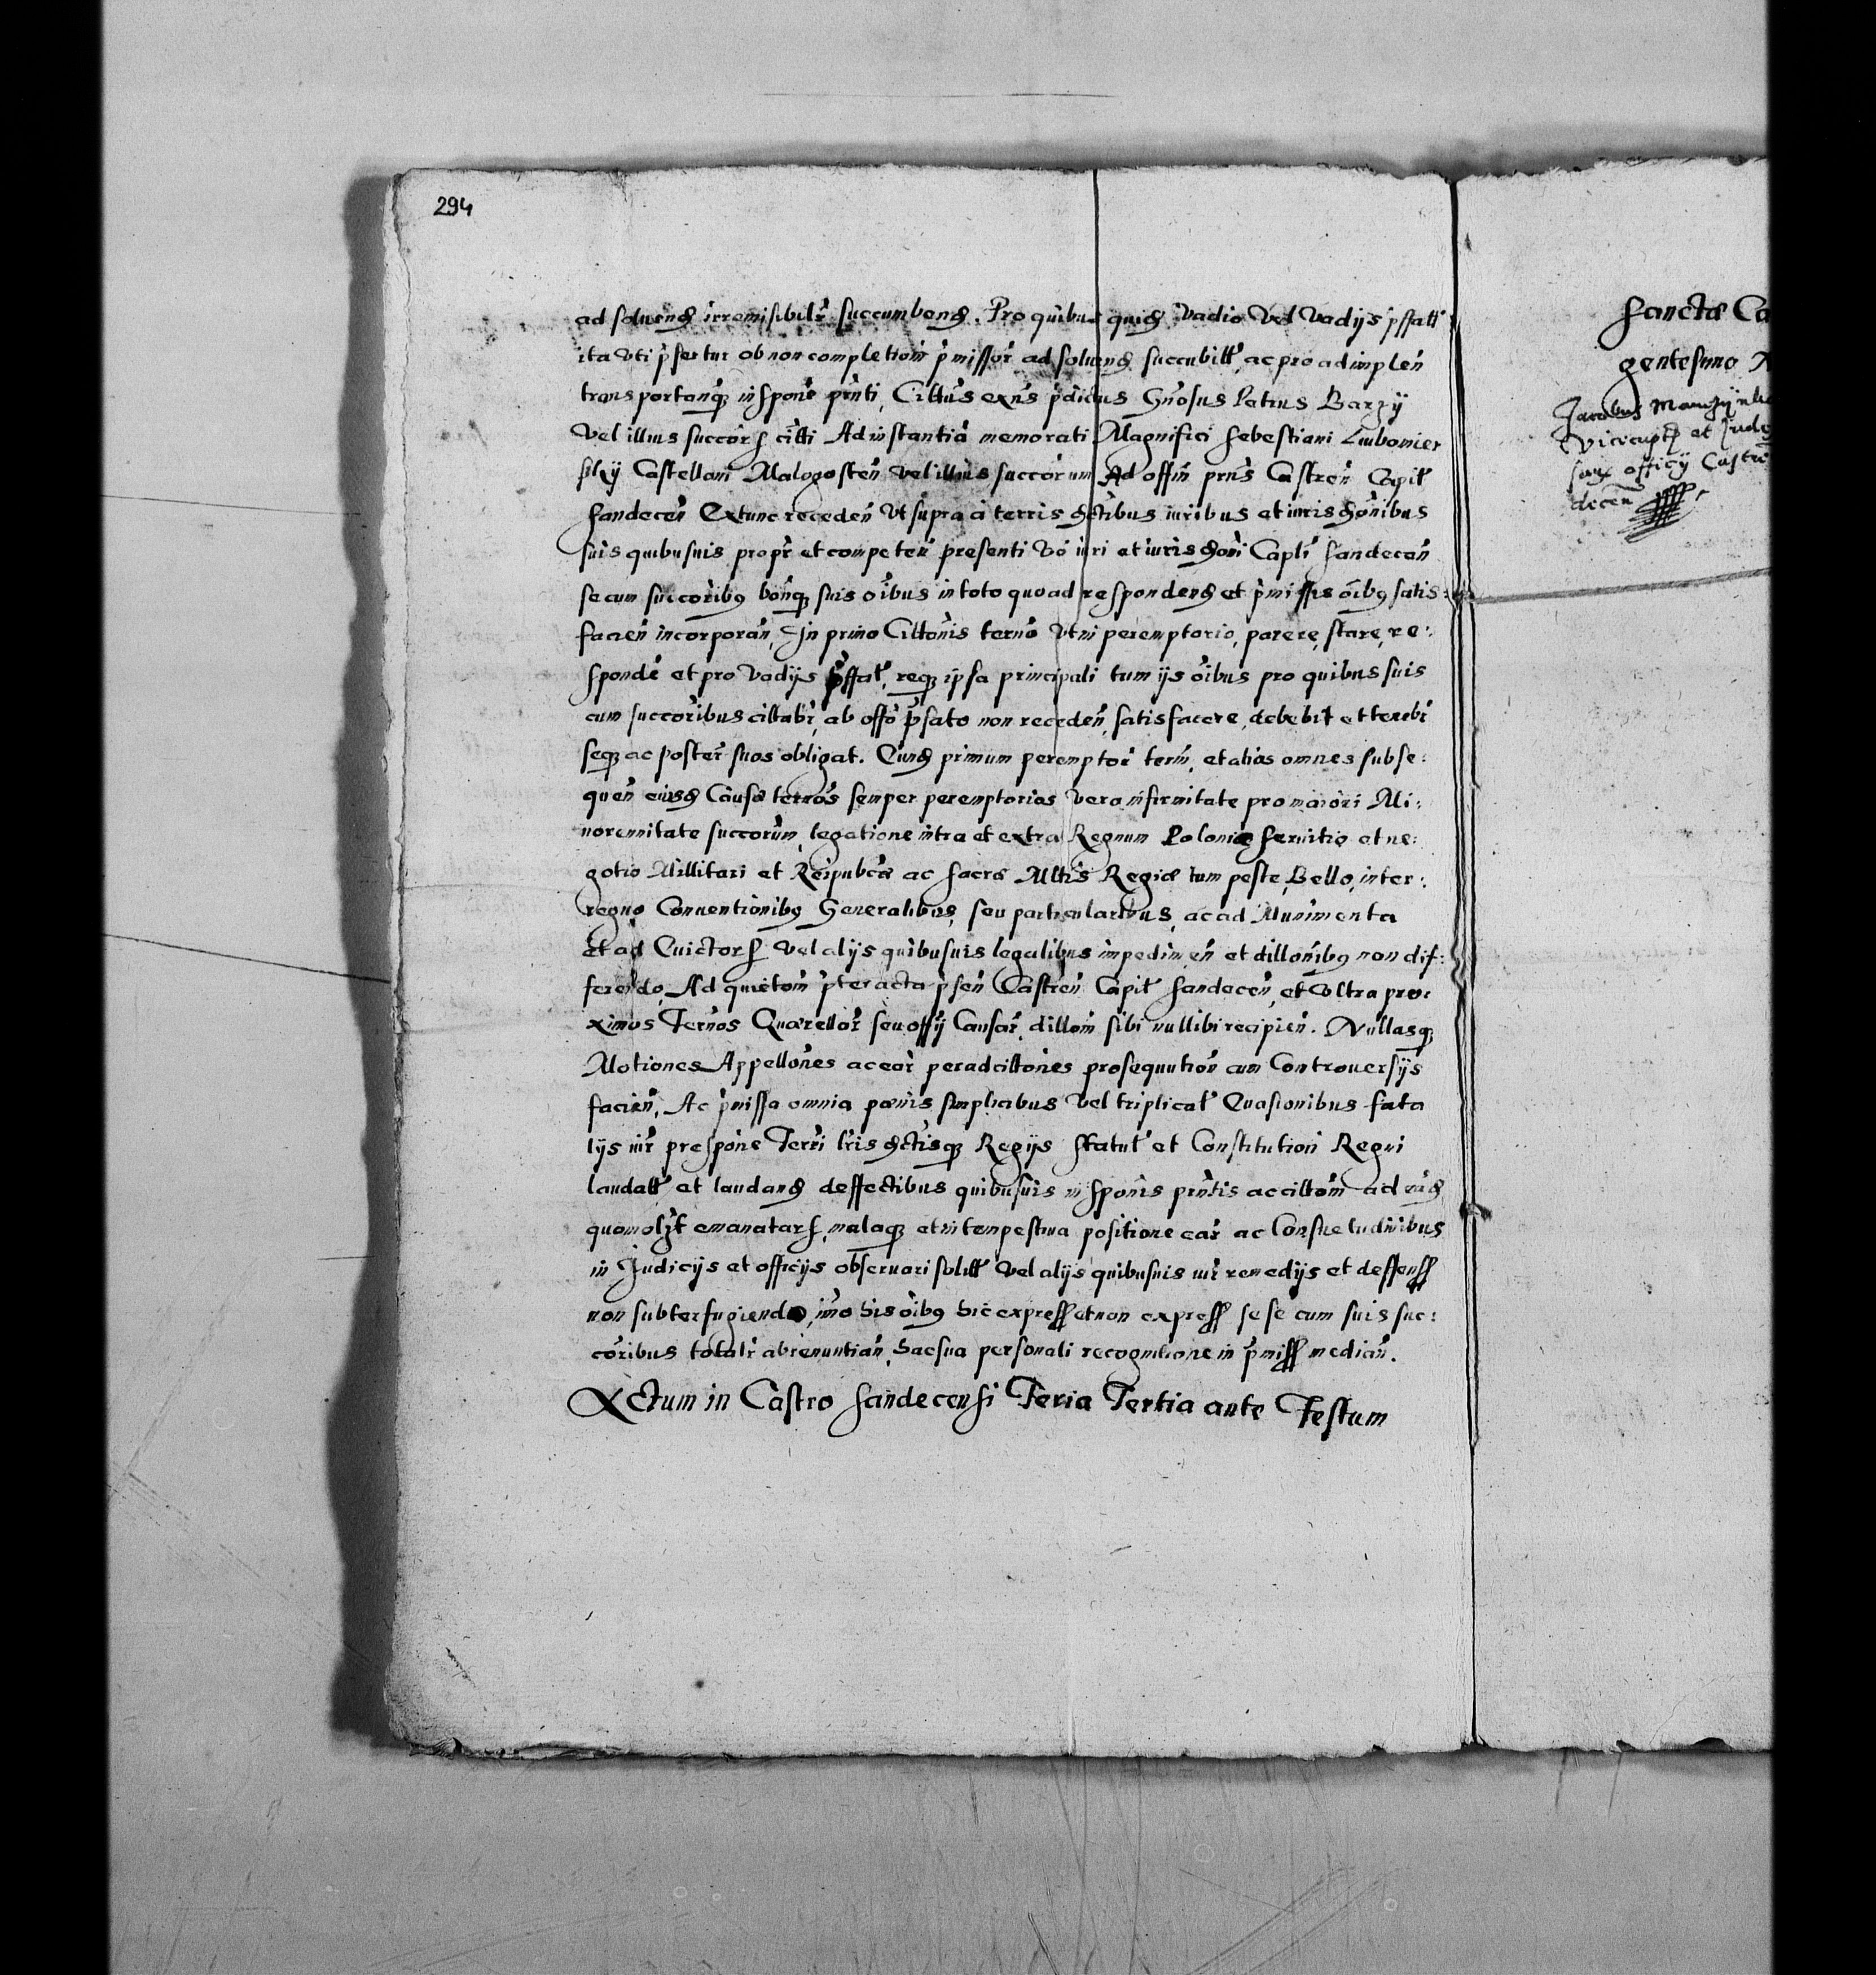 294
ad soluend irremisibilr succumbend. Pro quibus quid vadio vel vadijs pffatt
ita uti pfertur ob non completiom pmissor ad soluend succubitt, ac pro adimplen
transportanq inspone pnti, Cittus exns pdictus Gnosus Petrus Barzij
vel illius succors citti Ad instantia memorati Magnifici Sebestiani Lubomier
skij Castellani Malogosten vel illius succorum Ad offin prns Castren Capit
Sandecen Extunc receden ut supra a terris dctibus iuribus et iurisdonibus
suis quibusuis propr et competen presenti vo iuri et iurisdoni Capli Sandecen
se cum succoribq bonq suis oibus in toto quo ad respondend et pmissis oibq satis:
facien incorporan, In primo Cittonis terno vtni peremptorio, parere, stare, re:
sponde et pro vadijs pffat, req ipsa principali tum ijs oibus pro quibus suis
cum succoribus cittabr, ab offo pfato non receden, satisfacere, debebit et tenebr
seq ac poster suos obligat. Eiusd primum peremptor term, et alios omnes subse:
quen eiusd Causae ternos semper peremptorios vera infirmitate pro maiori Mi:
norennitate succorum, legatione intra et extra Regnum Poloniae seruitio et ne:
gotio Millitari et Reipubcae ac Sacrae Mttis Regiae tum peste, Bello, inter:
regno Conuentionibq Generalibus, seu particularibus, ac ad Munimenta
et ad Euictors vel alijs quibusuis legalibus impedimen et dillonibq non dif:
ferendo, Ad quietom pter acta psen Castren Capit Sandecen, et ultra pro:
ximos Ternos Quaerellar seu offij Causar, dillom sibi nullibi recipien. Nullasq
Motiones Appellones ac ear per adcittones prosequution cum Controuersijs
facien, Ac pmissa omnia paenis simplicibus vel triplicat Euasionibus fata
lijs iur prespone Terri lris dctisq Regijs Statut et Constitution Regni
laudatt et laudand deffectibus quibusuis insponis pntis ac cittom ad
quomolzt emanatars, malaq et intempestiua positione ear ac Consuetudinibus
in Judicijs et officijs obseruari solitt vel alijs quibusuis iur remedijs et deffenss
non subterfugiendo, imo his oibq hic express et non express sese cum suis suc:
coribus totalr abrenuntian, hac sua personali recognitione in pmiss median.
Actum in Castro Sandecensi Feria Tertia ante Festum
Sanctae Ca
gentesimo
Jacobus
Vicecapts et Jude
officij Castre
decen